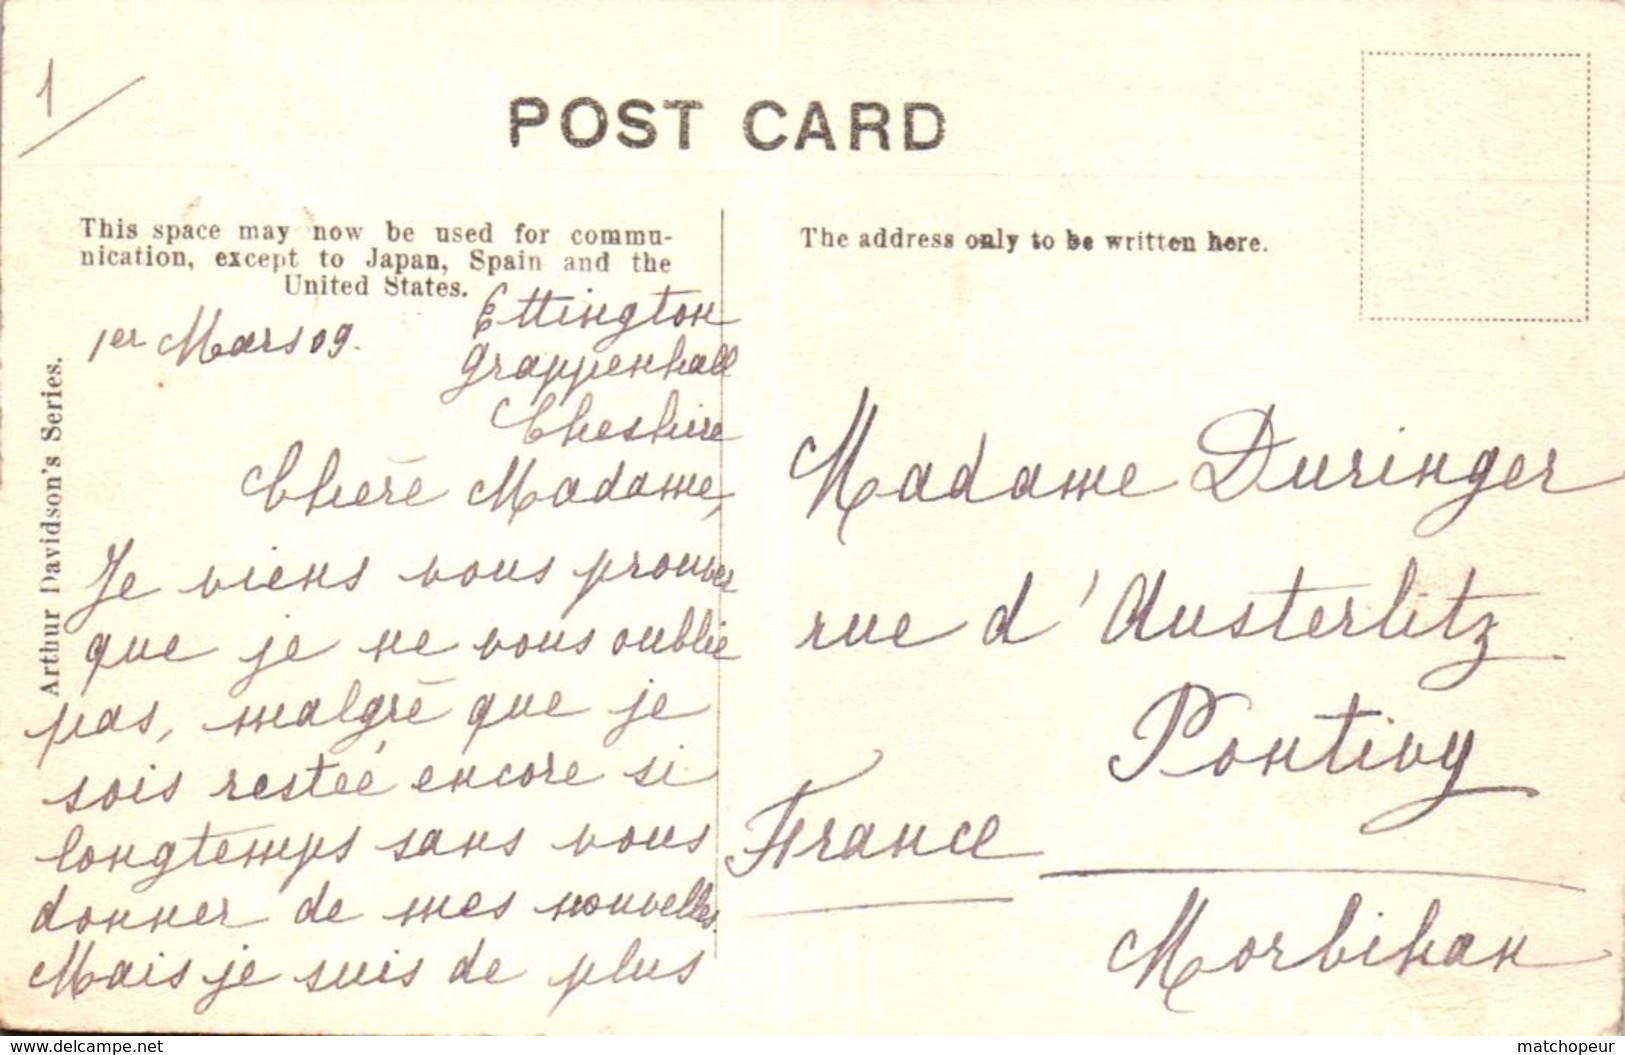 1
POST CARD
This space may now be used for commu-
nication, except to Japan, Spain and the
United States.
The address only to be written here.
Arthur Davidson's Series.
1er Mars 09.
Ettington
Grappenhall
Cheshire
Chère Madame,
Je viens vous prouver
que je ne vous oublie
pas, malgré que je
sois restée encore si
longtemps sans vous
donner de mes nouvelles.
Mais je suis de plus
Madame Duringer
rue d'Austerlitz
Pontivy
France
Morbihan
www.delcampe.net
matchopeur